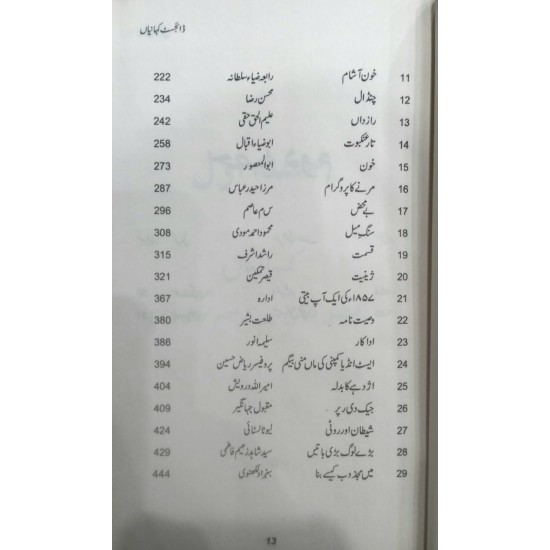 ڈائجسٹ کہانیاں
11 خون آشام رابعہ ضیاء سلطانہ 222
12 چنڈال محسن رضا 234
13 راز داں علیم الحق حقی 242
14 تار عنکبوت ابو ضیاء اقبال 258
15 خون ابو المنصور 273
16 مرنے کا پروگرام مرزا حیدر عباس 287
17 بے محض س م عاصم 296
18 سنگِ میل محمود احمد مودی 308
19 قسمت راشد اشرف 315
20 ژینیت قیصر تمکین 321
21 ۱۸۵۷ء کی ایک آپ بیتی ادارہ 367
22 وصیت نامہ طلعت بشیر 380
23 اداکار سلیمہ انور 386
24 ایسٹ انڈیا کمپنی کی ماں منی بیگم پروفیسر ریاض حسین 394
25 اژدہے کا بدلہ امیر اللہ درویش 404
26 جیک دی رپر مقبول جہانگیر 409
27 شیطان اور روٹی لیو ٹالسٹائی 424
28 بڑے لوگ بڑی باتیں سید شاہد زعیم فاطمی 429
29 میں مجذوب کیسے بنا بہزاد لکھنوی 444
13